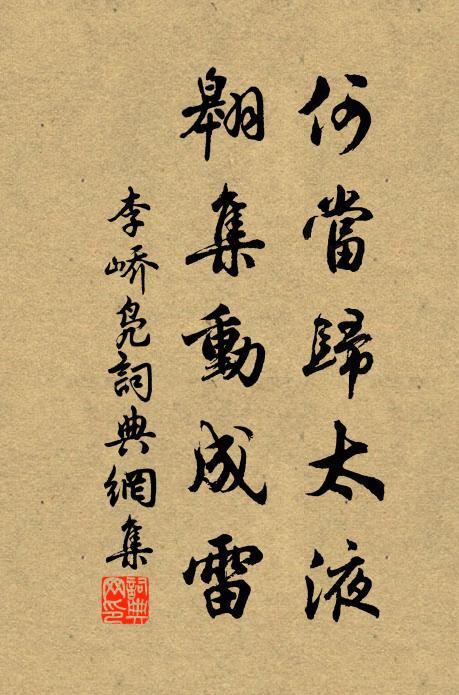 何當歸太液
翱集動成雷
李嶠鳧詞典網集
詞典网印